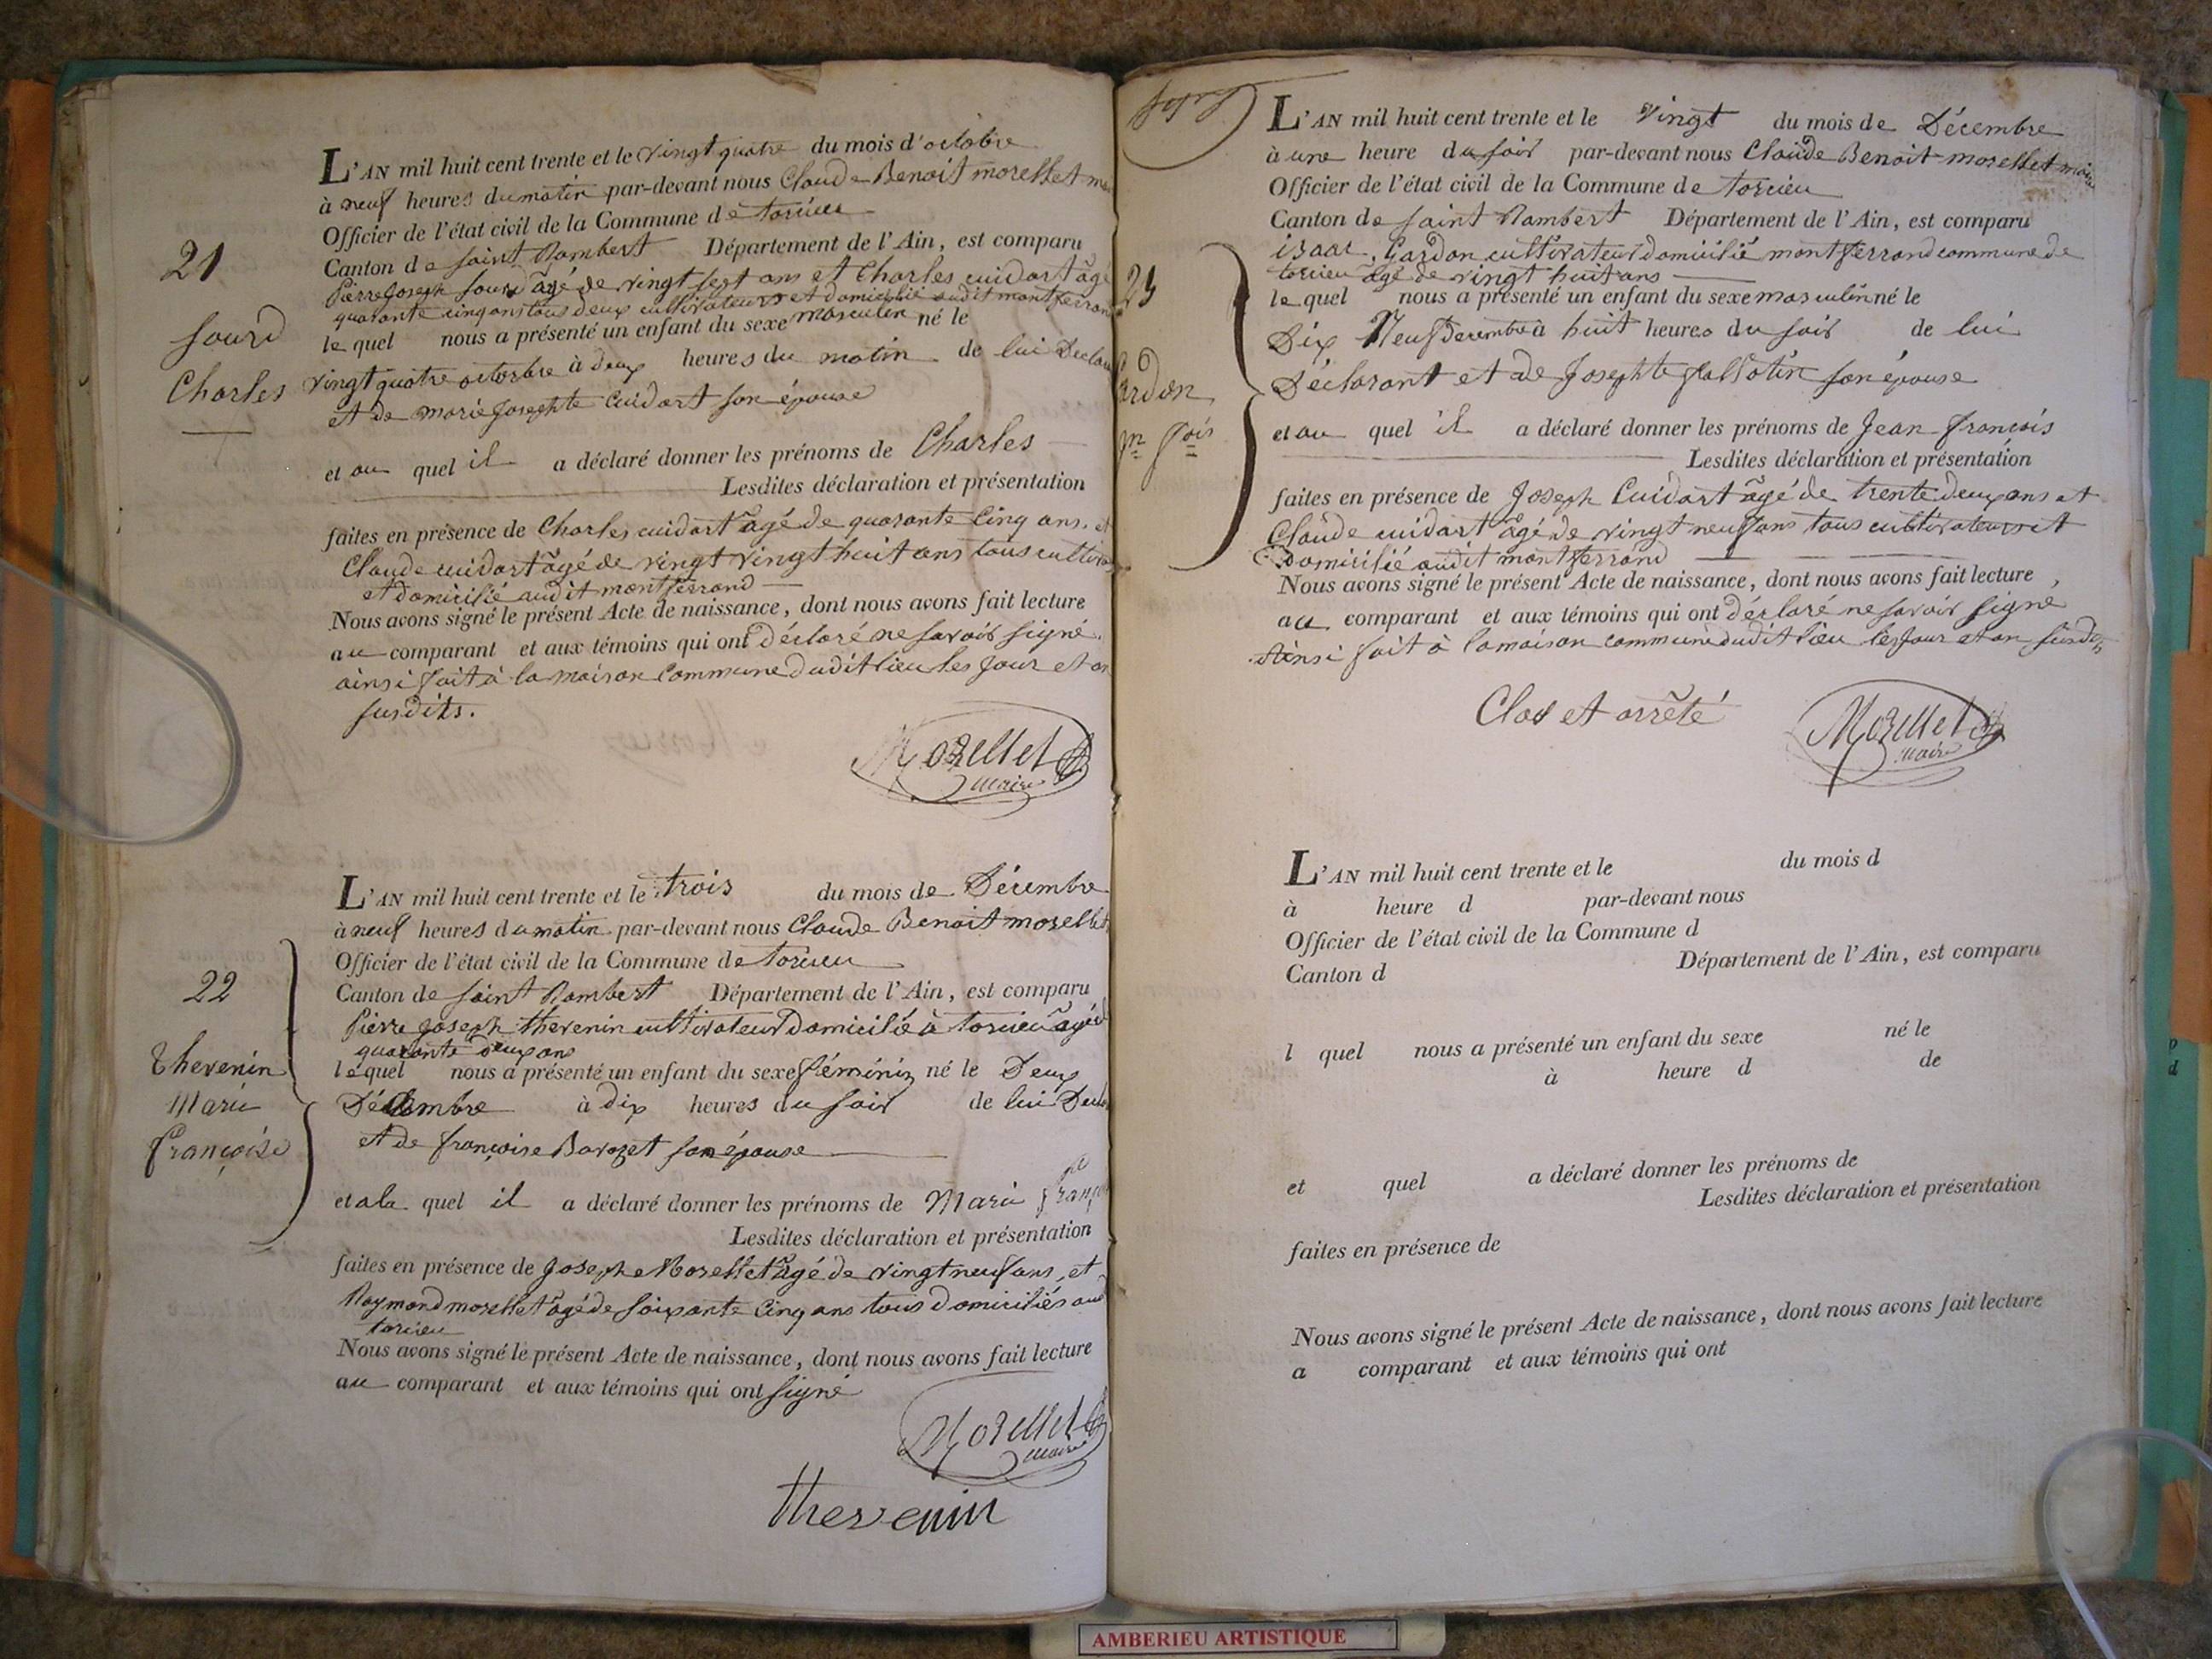 21
Sourd
Charles
L'AN mil huit cent trente et le vingt quatre du mois d'octobre
à neuf heures du matin par-devant nous Claude Benoit morellet
Officier de l'état civil de la Commune de torcieu
Canton de saint Rambert Département de l'Ain, est comparu
Pierre Joseph sourd âgé de vingt sept ans et Charles cuidart âgé
quarante cinq ans tous deux cultivateurs et domicilié audit montferrand
le quel nous a présenté un enfant du sexe masculin né le
vingt quatre octobre à deux heures du matin de lui
et de marie Josephte Cuidart son épouse
et au quel il a déclaré donner les prénoms de Charles
Lesdites déclaration et présentation
faites en présence de Charles cuidart âgé de quarante Cinq ans. et
Claude cuidart âgé de vingt vingt huit ans tous
et domicilié audit montferrand
Nous avons signé le présent Acte de naissance, dont nous avons fait lecture
au comparant et aux témoins qui ont déclaré ne savoir signé.
ainsi fait à la maison Commune dudit lieu les jour et an
susdits.
Morellet
maire
22
Thevenin
Marie
françoise
L'AN mil huit cent trente et le trois du mois de Décembre
à neuf heures du matin par-devant nous Claude Benoit morellet
Officier de l'état civil de la Commune de torcieu
Canton de saint Rambert Département de l'Ain, est comparu
Pierre Joseph thevenin cultivateur Domicilié à torcieu âgé
quarante deux ans
le quel nous a présenté un enfant du sexe féminin né le Deux
Décembre à dix heures du soir de lui
et de françoise Barozet son épouse
et a la quel il a déclaré donner les prénoms de Marie
Lesdites déclaration et présentation
faites en présence de Joseph Morellet âgé de vingt neuf ans, et
Raymond morellet âgé de soixante Cinq ans tous domiciliés
torcieu
Nous avons signé le présent Acte de naissance, dont nous avons fait lecture
au comparant et aux témoins qui ont signé
Morellet
maire
thevenin
23
L'AN mil huit cent trente et le vingt du mois de Décembre
à une heure du soir par-devant nous Claude Benoit morellet maire
Officier de l'état civil de la Commune de torcieu
Canton de saint Rambert Département de l'Ain, est comparu
isaac, Gardon cultivateur domicilié montferrand commune de
torcieu âgé de vingt huit ans
le quel nous a présenté un enfant du sexe masculin né le
Dix Neuf Decembre à huit heures du soir de lui
Déclarant et de Josephte son épouse
et au quel il a déclaré donner les prénoms de Jean françois
Lesdites déclaration et présentation
faites en présence de Joseph Cuidart âgé de trente deux ans et
Claude cuidart âgé de vingt neuf ans tous cultivateurs et
Domicilié audit montferrand
Nous avons signé le présent Acte de naissance, dont nous avons fait lecture,
au comparant et aux témoins qui ont déclaré ne savoir signé
Ainsi fait à la maison commune dudit lieu les jour et an
Clos et arrêté
Morellet
maire
L'AN mil huit cent trente et le du mois d
à heure d par-devant nous
Officier de l'état civil de la Commune d
Canton d Département de l'Ain, est comparu
l quel nous a présenté un enfant du sexe né le
à heure d de
et quel a déclaré donner les prénoms de
Lesdites déclaration et présentation
faites en présence de
Nous avons signé le présent Acte de naissance, dont nous avons fait lecture
a comparant et aux témoins qui ont
AMBERIEU ARTISTIQUE